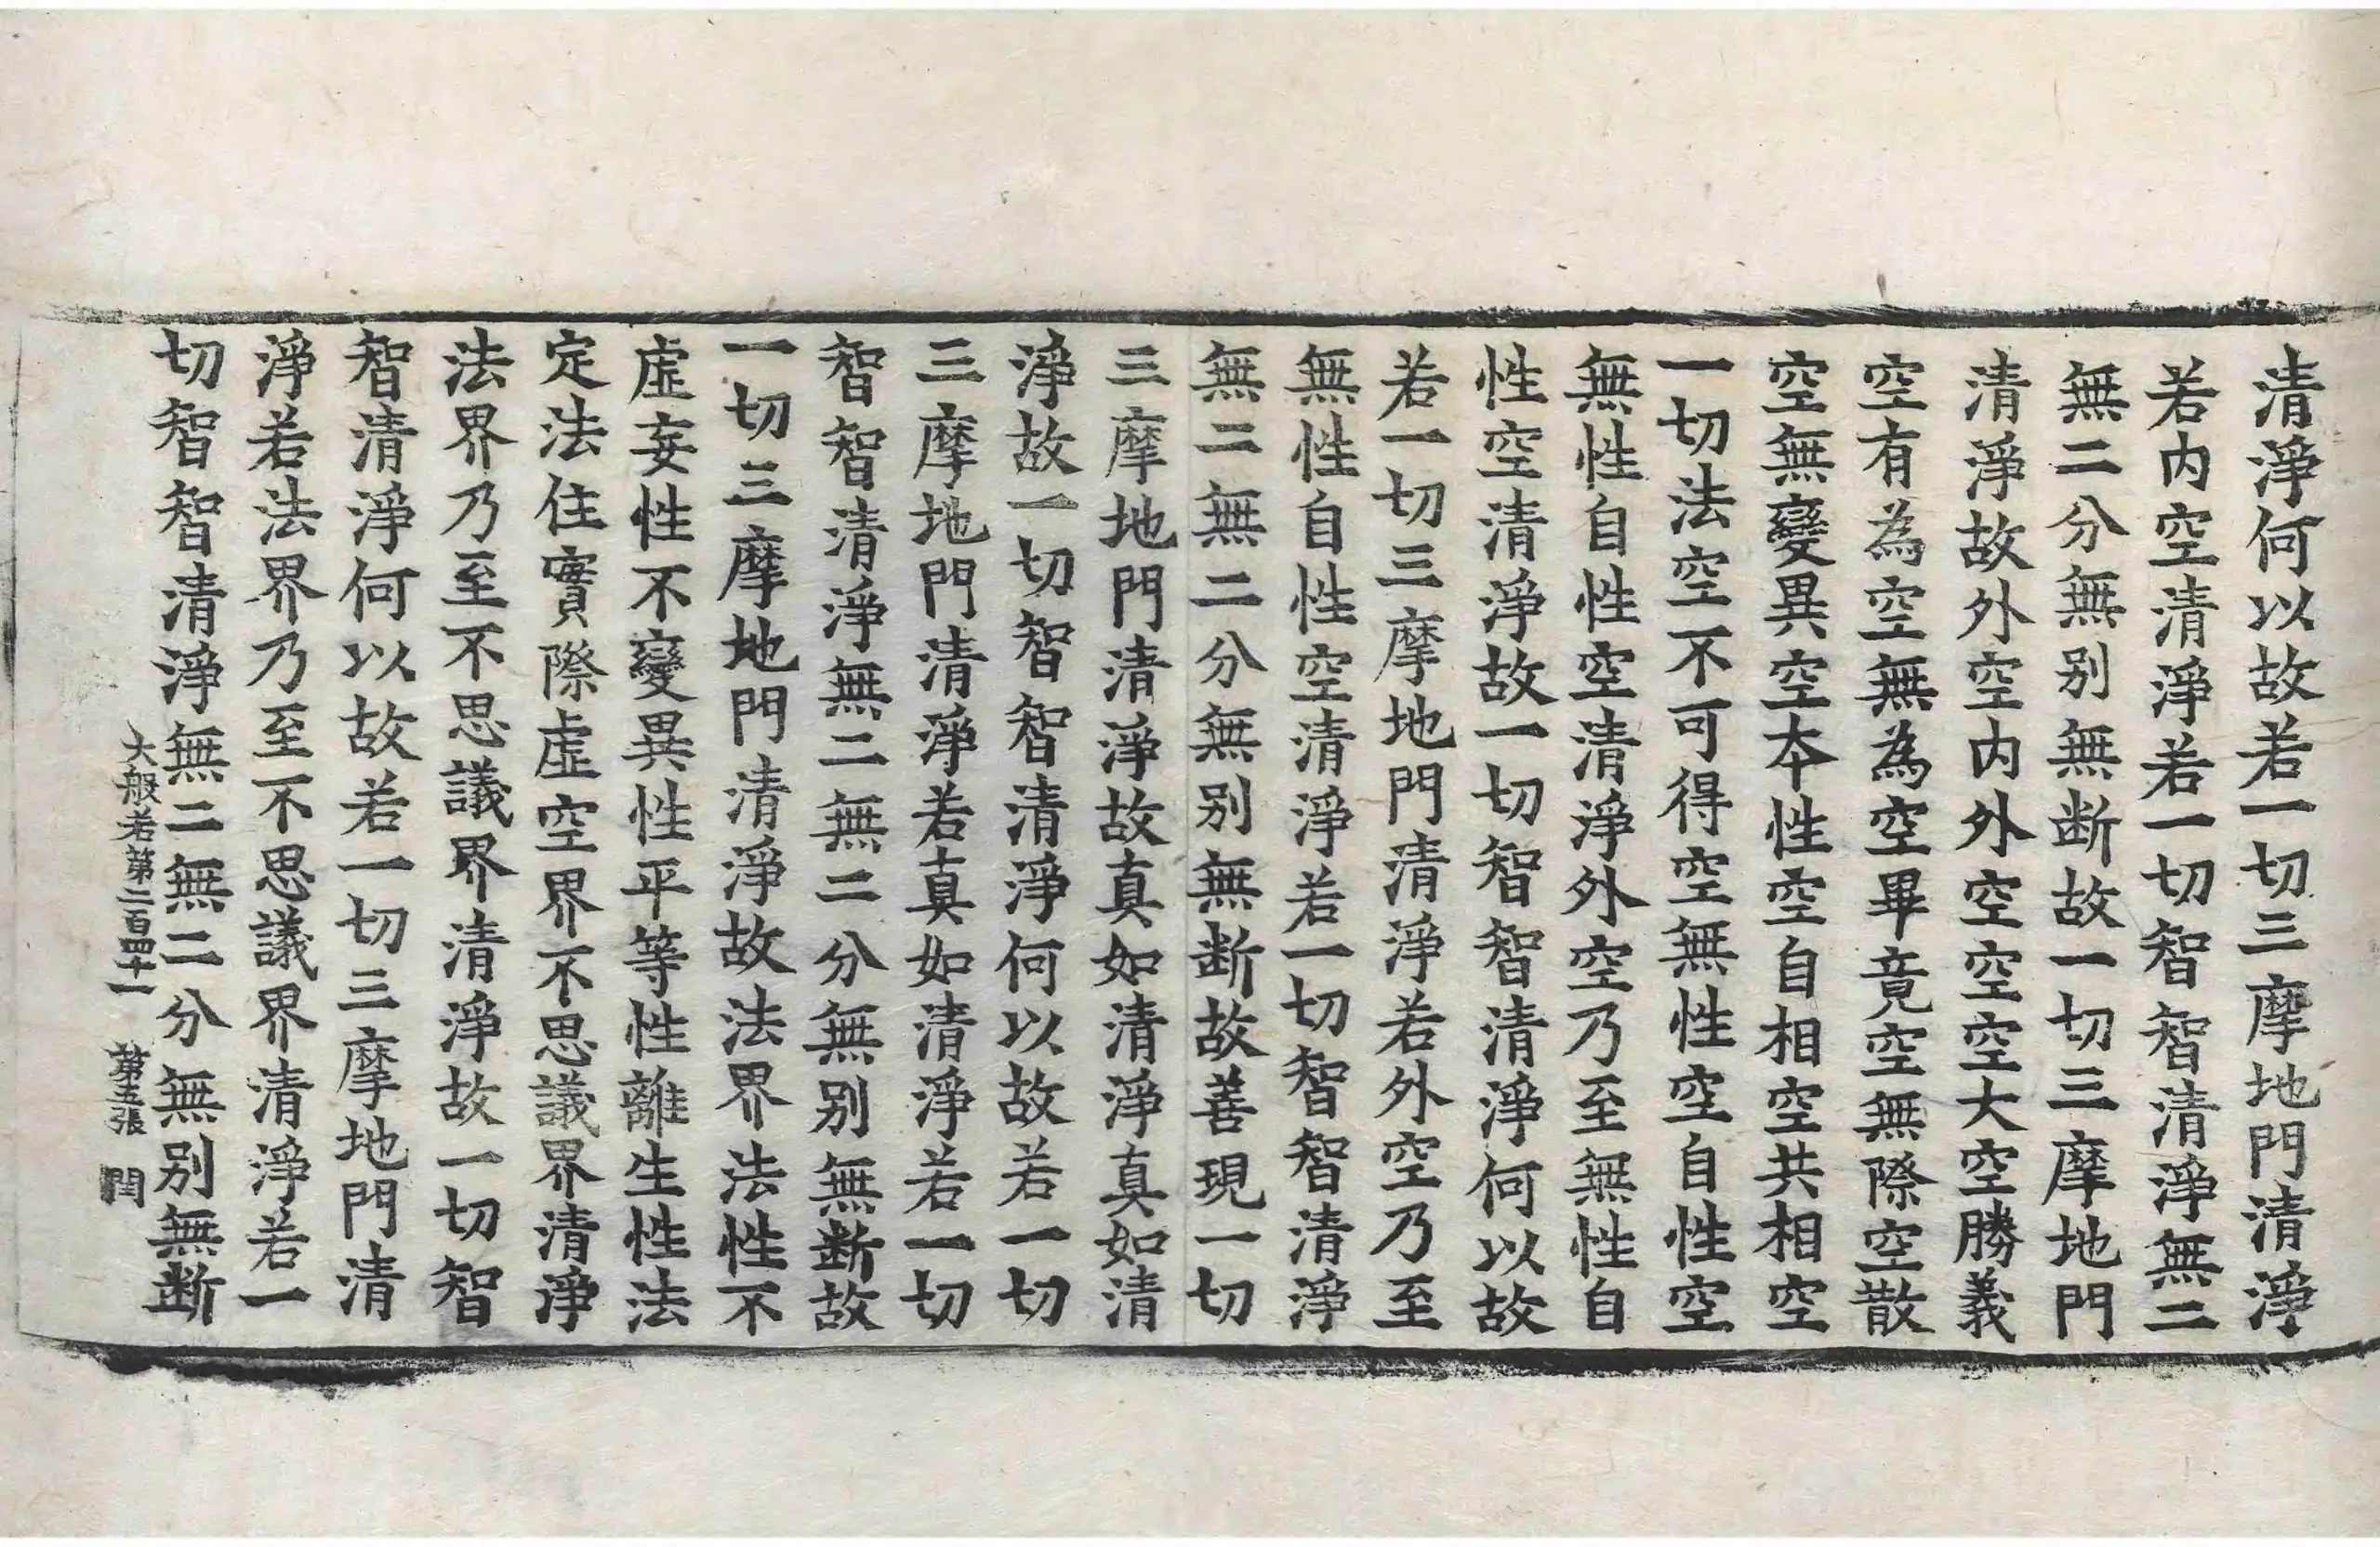 清淨何以故若一切三摩地門清淨
若内空清淨若一切智智清淨無二
無二分無别無断故一切三摩地門
清淨故外空内外空空空大空勝義
空有為空無為空畢竟空無際空散
空無變異空本性空自相空共相空
一切法空不可得空無性空自性空
無性自性空清淨外空乃至無性自
性空清淨故一切智智清淨何以故
若一切三摩地門清淨若外空乃至
無性自性空清淨若一切智智清淨
無二無二分無别無断故善現一切
三摩地門清淨故真如清淨真如清
淨故一切智智清淨何以故若一切
三摩地門清淨若真如清淨若一切
智智清淨無二無二分無别無断故
一切三摩地門清淨故法界法性不
虚妄性不變異性平等性離生性法
定法住實際虚空界不思議界清淨
法界乃至不思議界清淨故一切智
智清淨何以故若一切三摩地門清
淨若法界乃至不思議界清淨若一
切智智清淨無二無二分無别無断
大般若第二百四十一 第五張 閏